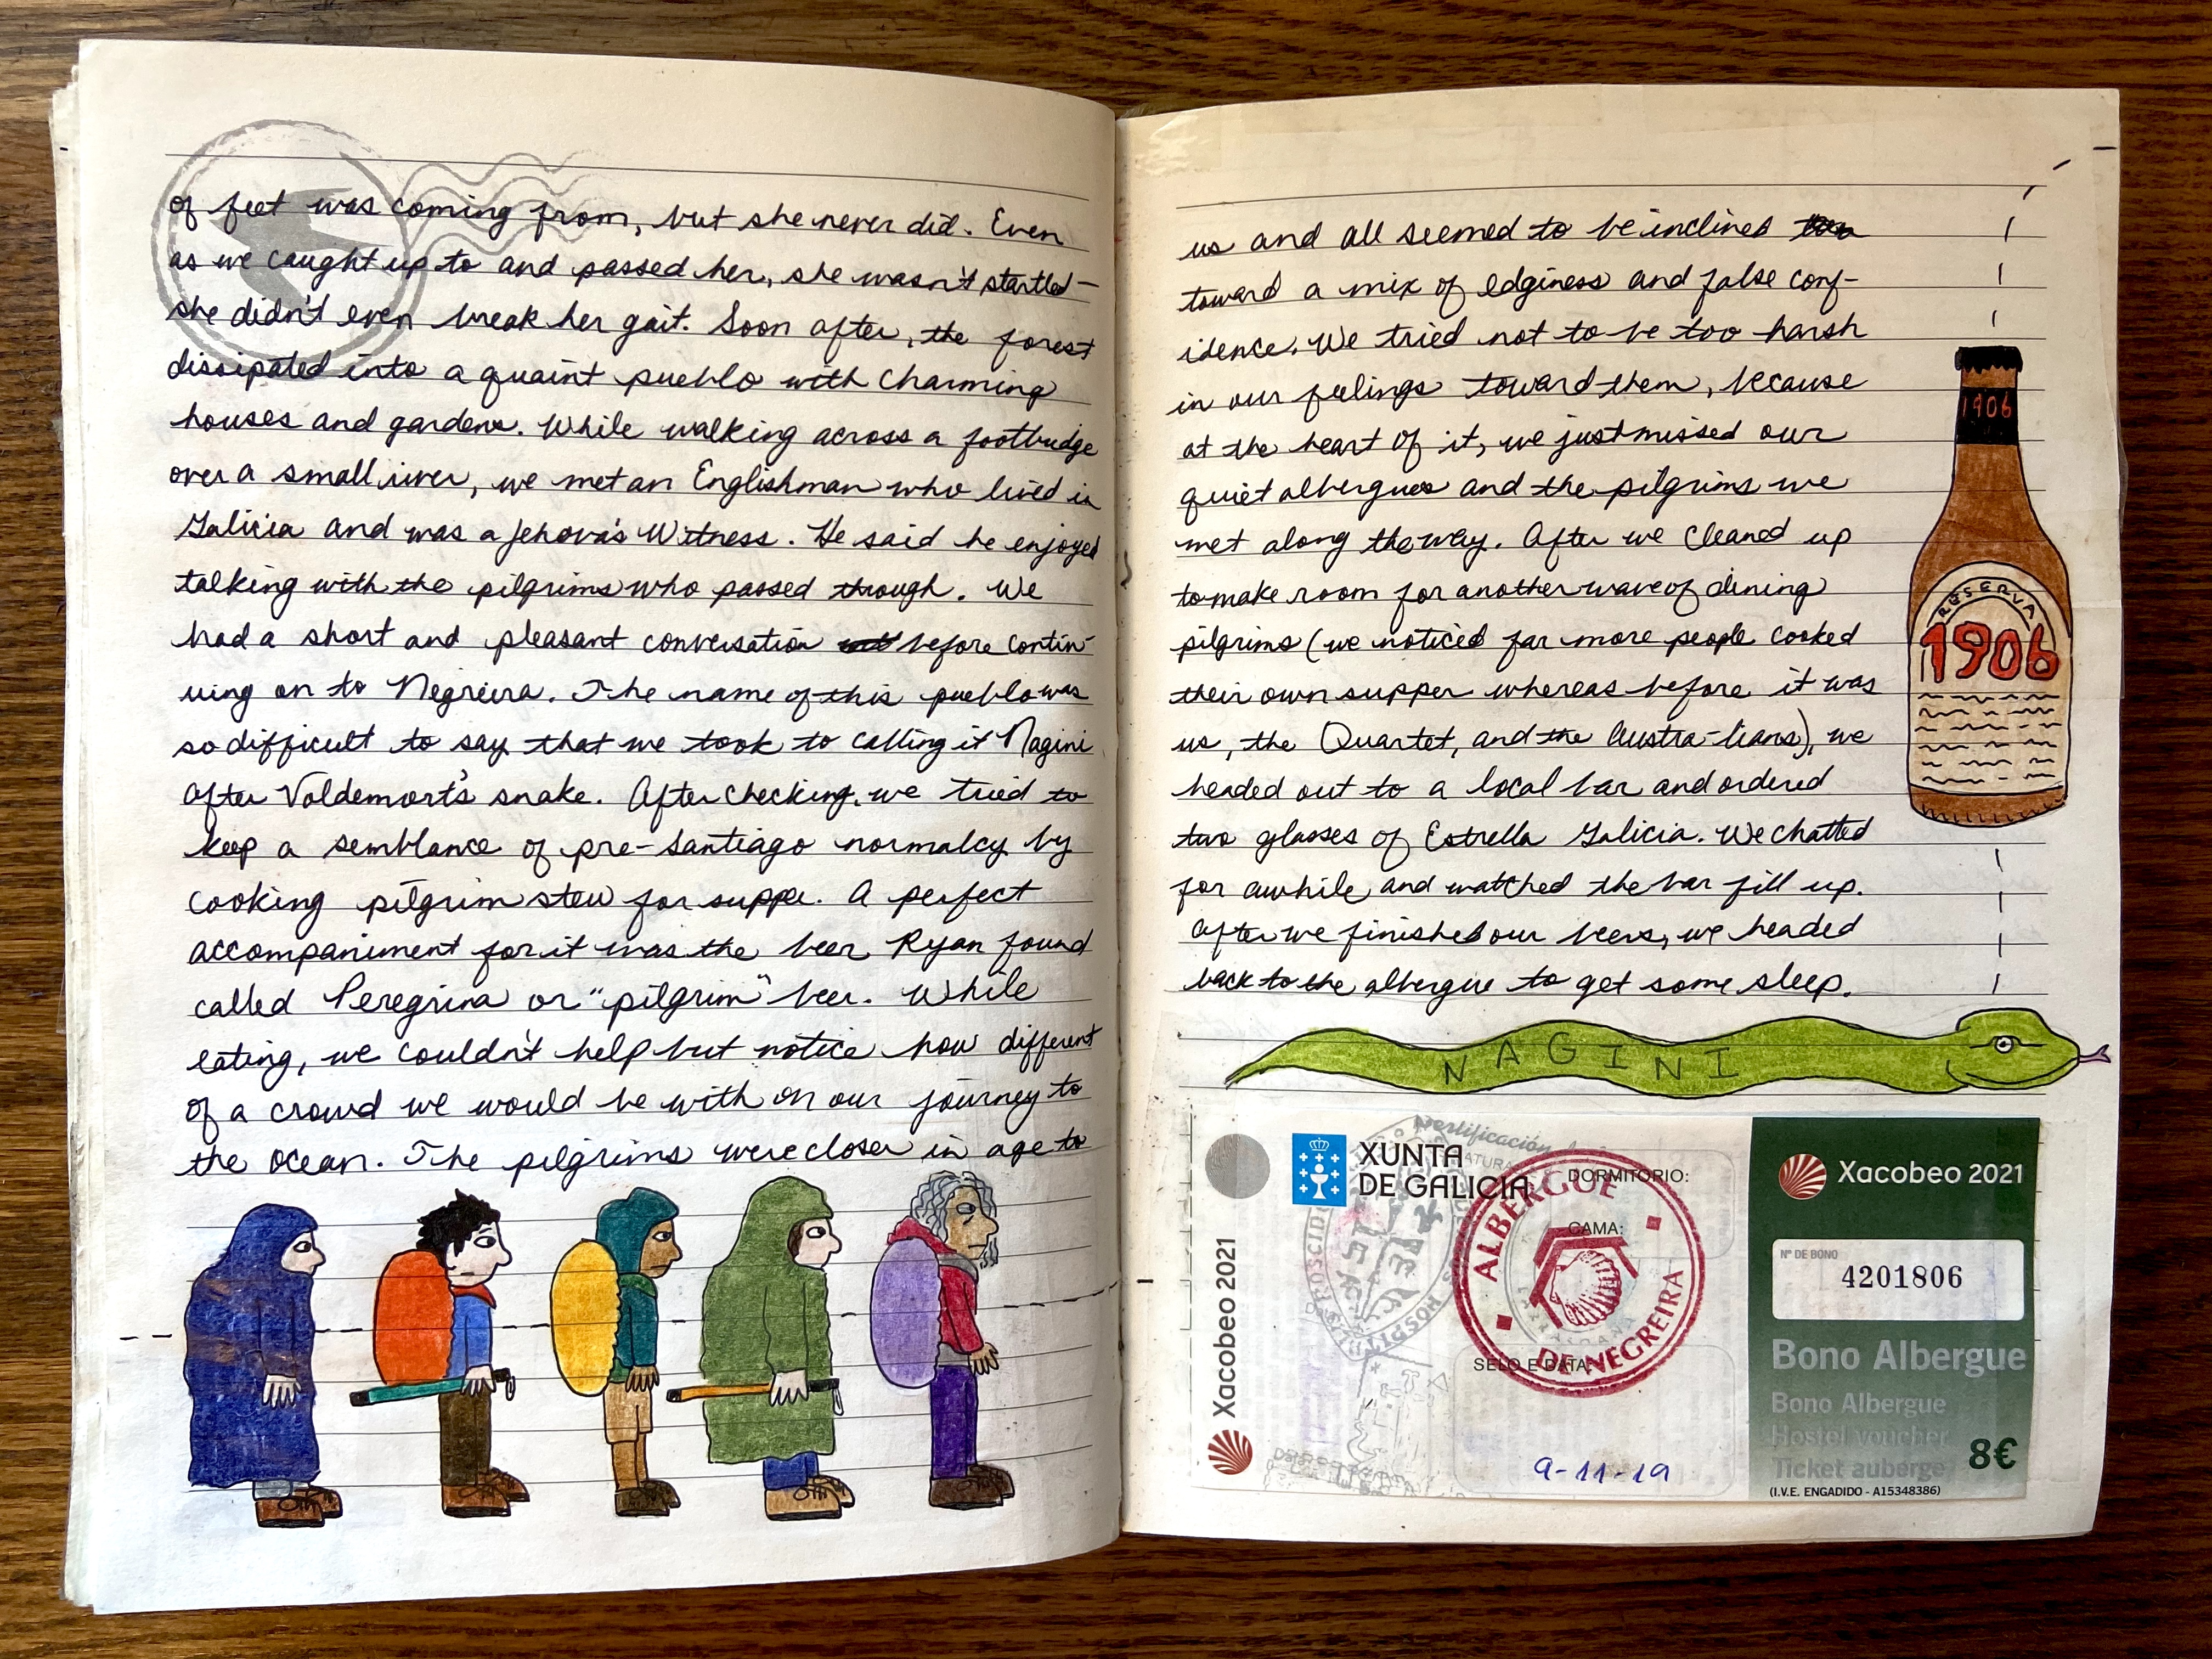 of feet was coming from, but she never did. Even
as we caught up to and passed her, she wasn't startled –
she didn't even break her gait. Soon after, the forest
dissipated into a quaint pueblo with charming
houses and gardens. While walking across a footbridge
over a small river, we met an Englishman who lived in
Galicia and was a Jehova's Witness. He said he enjoyed
talking with the pilgrims who passed through. We
had a short and pleasant conversation before contin-
uing on to Negreira. The name of this pueblo was
so difficult to say that we took to calling it Nagini
after Voldemort's snake. After checking, we tried to
keep a semblance of pre-Santiago normalcy by
cooking pilgrim stew for supper. A perfect
accompaniment for it was the beer Ryan found
called Peregrina or "pilgrim" beer. While
eating, we couldn't help but notice how different
of a crowd we would be with on our journey to
the ocean. The pilgrims were closer in age to
us and all seemed to be inclined
toward a mix of edginess and false conf-
idence. We tried not to be too harsh
in our feelings toward them, because
at the heart of it, we just missed our
quiet albergues and the pilgrims we
met along the way. After we cleaned up
to make room for another wave of dining
pilgrims (we noticed far more people cooked
their own supper whereas before it was
us, the Quartet, and the Austra-lians), we
headed out to a local bar and ordered
two glasses of Estrella Galicia. We chatted
for awhile and watched the bar fill up.
After we finished our beers, we headed
back to the albergue to get some sleep.
1906
RESERVA
1906
NAGINI
Xacobeo 2021
XUNTA
DE GALICIA
DORMITORIO:
CAMA:
SELO E DATA:
ALBERGUE
DE NEGREIRA
9-11-19
Xacobeo 2021
Nº DE BONO
4201806
Bono Albergue
Bono Albergue
Hostel voucher
Ticket auberge
8€
(I.V.E. ENGADIDO - A15348386)